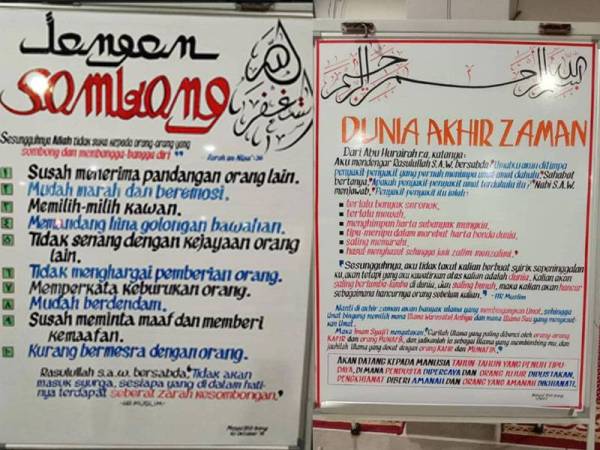 Jangan
Sombong
أستغفر الله
Sesungguhnya Allah tidak suka kepada orang-orang yang
sombong dan membangga-bangga diri"
Surah an Nisa': 36
Susah menerima pandangan orang lain.
Mudah marah dan beremosi.
Memilih-milih kawan.
Memandang hina golongan bawahan.
Tidak senang dengan kejayaan orang
lain.
Tidak menghargai pemberian orang.
Memperkata keburukan orang.
Mudah berdendam.
Susah meminta maaf dan memberi
kemaafan.
Kurang bermesra dengan orang.
Rasulullah s.a.w. bersabda, "Tidak akan
masuk syurga, sesiapa yang di dalam hati-
nya terdapat seberat zarah kesombongan."
-HR MUSLIM-
بسم الله الرحمن الرحيم
DUNIA AKHIR ZAMAN
Dari Abu Hurairah r.a, katanya:
Aku mendengar Rasulullah S.A.W. bersabda "Umatku akan ditimpa
penyakit-penyakit yang pernah menimpa umat-umat dahulu." Sahabat
bertanya, "Apakah penyakit-penyakit umat terdahulu itu?" Nabi S.A.W.
menjawab, "Penyakit-penyakit itu ialah:
terlalu banyak seronok,
terlalu mewah,
menghimpun harta sebanyak mungkin,
tipu menipu dalam merebut harta benda dunia,
saling memarahi,
hasut menghasut sehingga jadi zalim menzalimi."
"Sesungguhnya, aku tidak takut kalian berbuat syirik sepeninggalan
ku, akan tetapi yang aku khawatirkan atas kalian adalah dunia. Kalian akan
saling berlumba-lumba di dunia, dan saling bunuh, maka kalian akan hancur
sebagaimana hancurnya orang sebelum kalian." -HR Muslim
Nanti di akhir zaman akan banyak ulama yang membingungkan Umat, sehingga
Umat bingung memilih mana Ulama Warasatul Anbiya dan mana Ulama Suu' yang menyesat-
kan Umat.
Maka Imam Syafi'i mengatakan, "Carilah Ulama yang paling dibenci oleh orang-orang
KAFIR dan orang MUNAFIK, dan jadikanlah ia sebagai Ulama yang membimbing mu, dan
jauhilah Ulama yang dekat dengan orang KAFIR dan MUNAFIK."
AKAN DATANG KEPADA MANUSIA TAHUN-TAHUN YANG PENUH TIPU
DAYA, DI MANA PENDUSTA DIPERCAYA DAN ORANG JUJUR DIDUSTAKAN,
PENGKHIANAT DISERI AMANAH DAN ORANG YANG AMANAH DIKHIANATI.